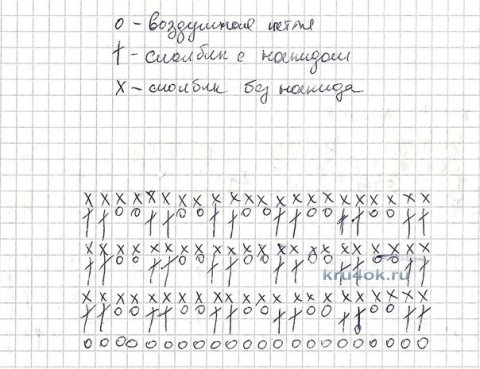 o - воздушная петля
† - столбик с накидом
x - столбик без накида
x x x x x x x x x x x x x x x x x x x x x x
† † o o † † o o † † o o † † o o † † o o † †
x x x x x x x x x x x x x x x x x x x x x x
† † o o † † o o † † o o † † o o † † o o † †
kru4ok.ru
x x x x x x x x x x x x x x x x x x x x x x
† † o o † † o o † † o o † † o o † † o o † †
o o o o o o o o o o o o o o o o o o o o o o